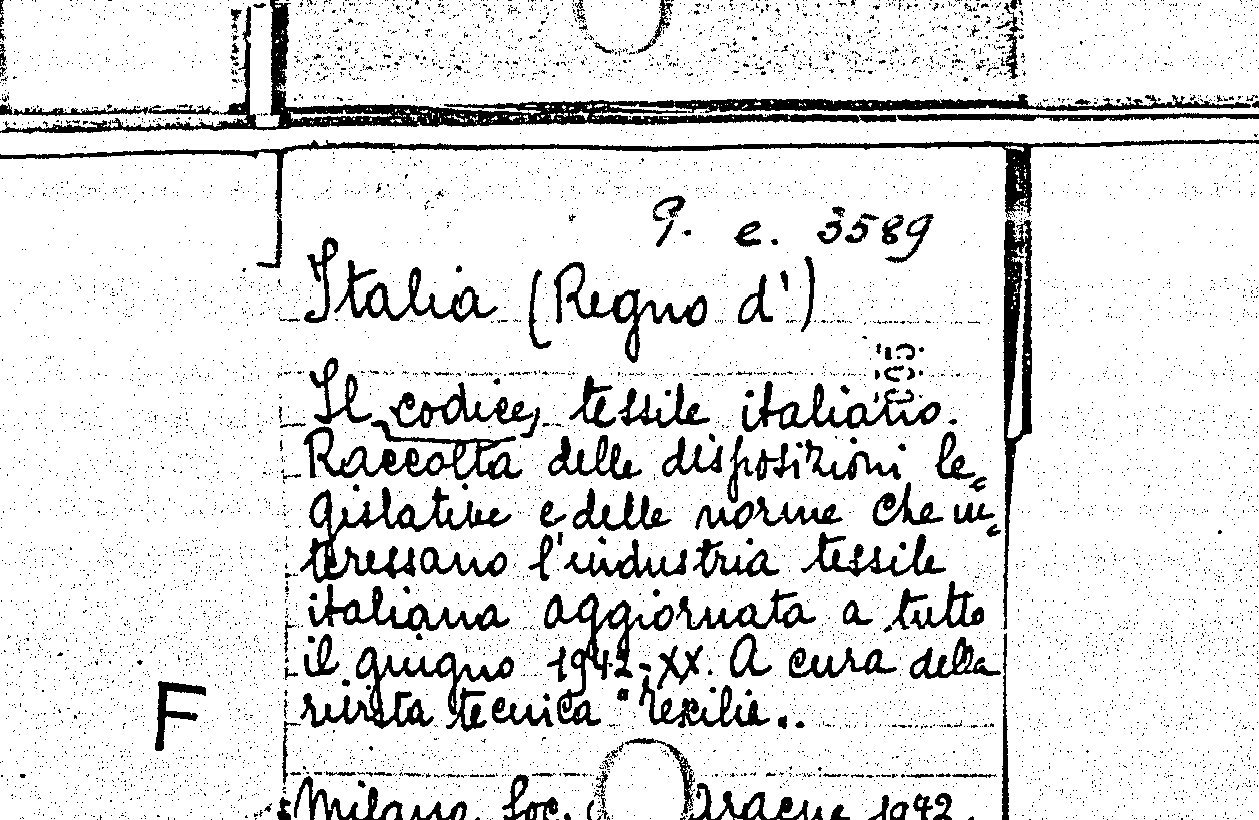 9. e. 3589
Italia (Regno d')
Il codice tessile italiano.
Raccolta delle disposizioni le=
gislative e delle norme che in=
teressano l'industria tessile
italiana aggiornata a tutto
il giugno 1942-XX. A cura della
rivista tecnica "Texilia".
F
Milano, Soc. Aracne 1942.